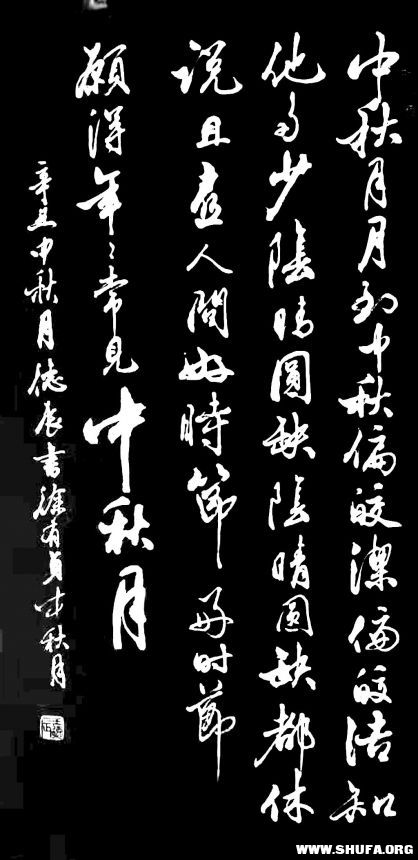 中秋月月到中秋偏皎潔偏皎洁知
他多少陰晴圓缺陰晴圓缺都休
说且喜人間好時節好时節
願得年〻常見中秋月
辛丑中秋月德辰書徐有貞中秋月
WWW.SHUFA.ORG